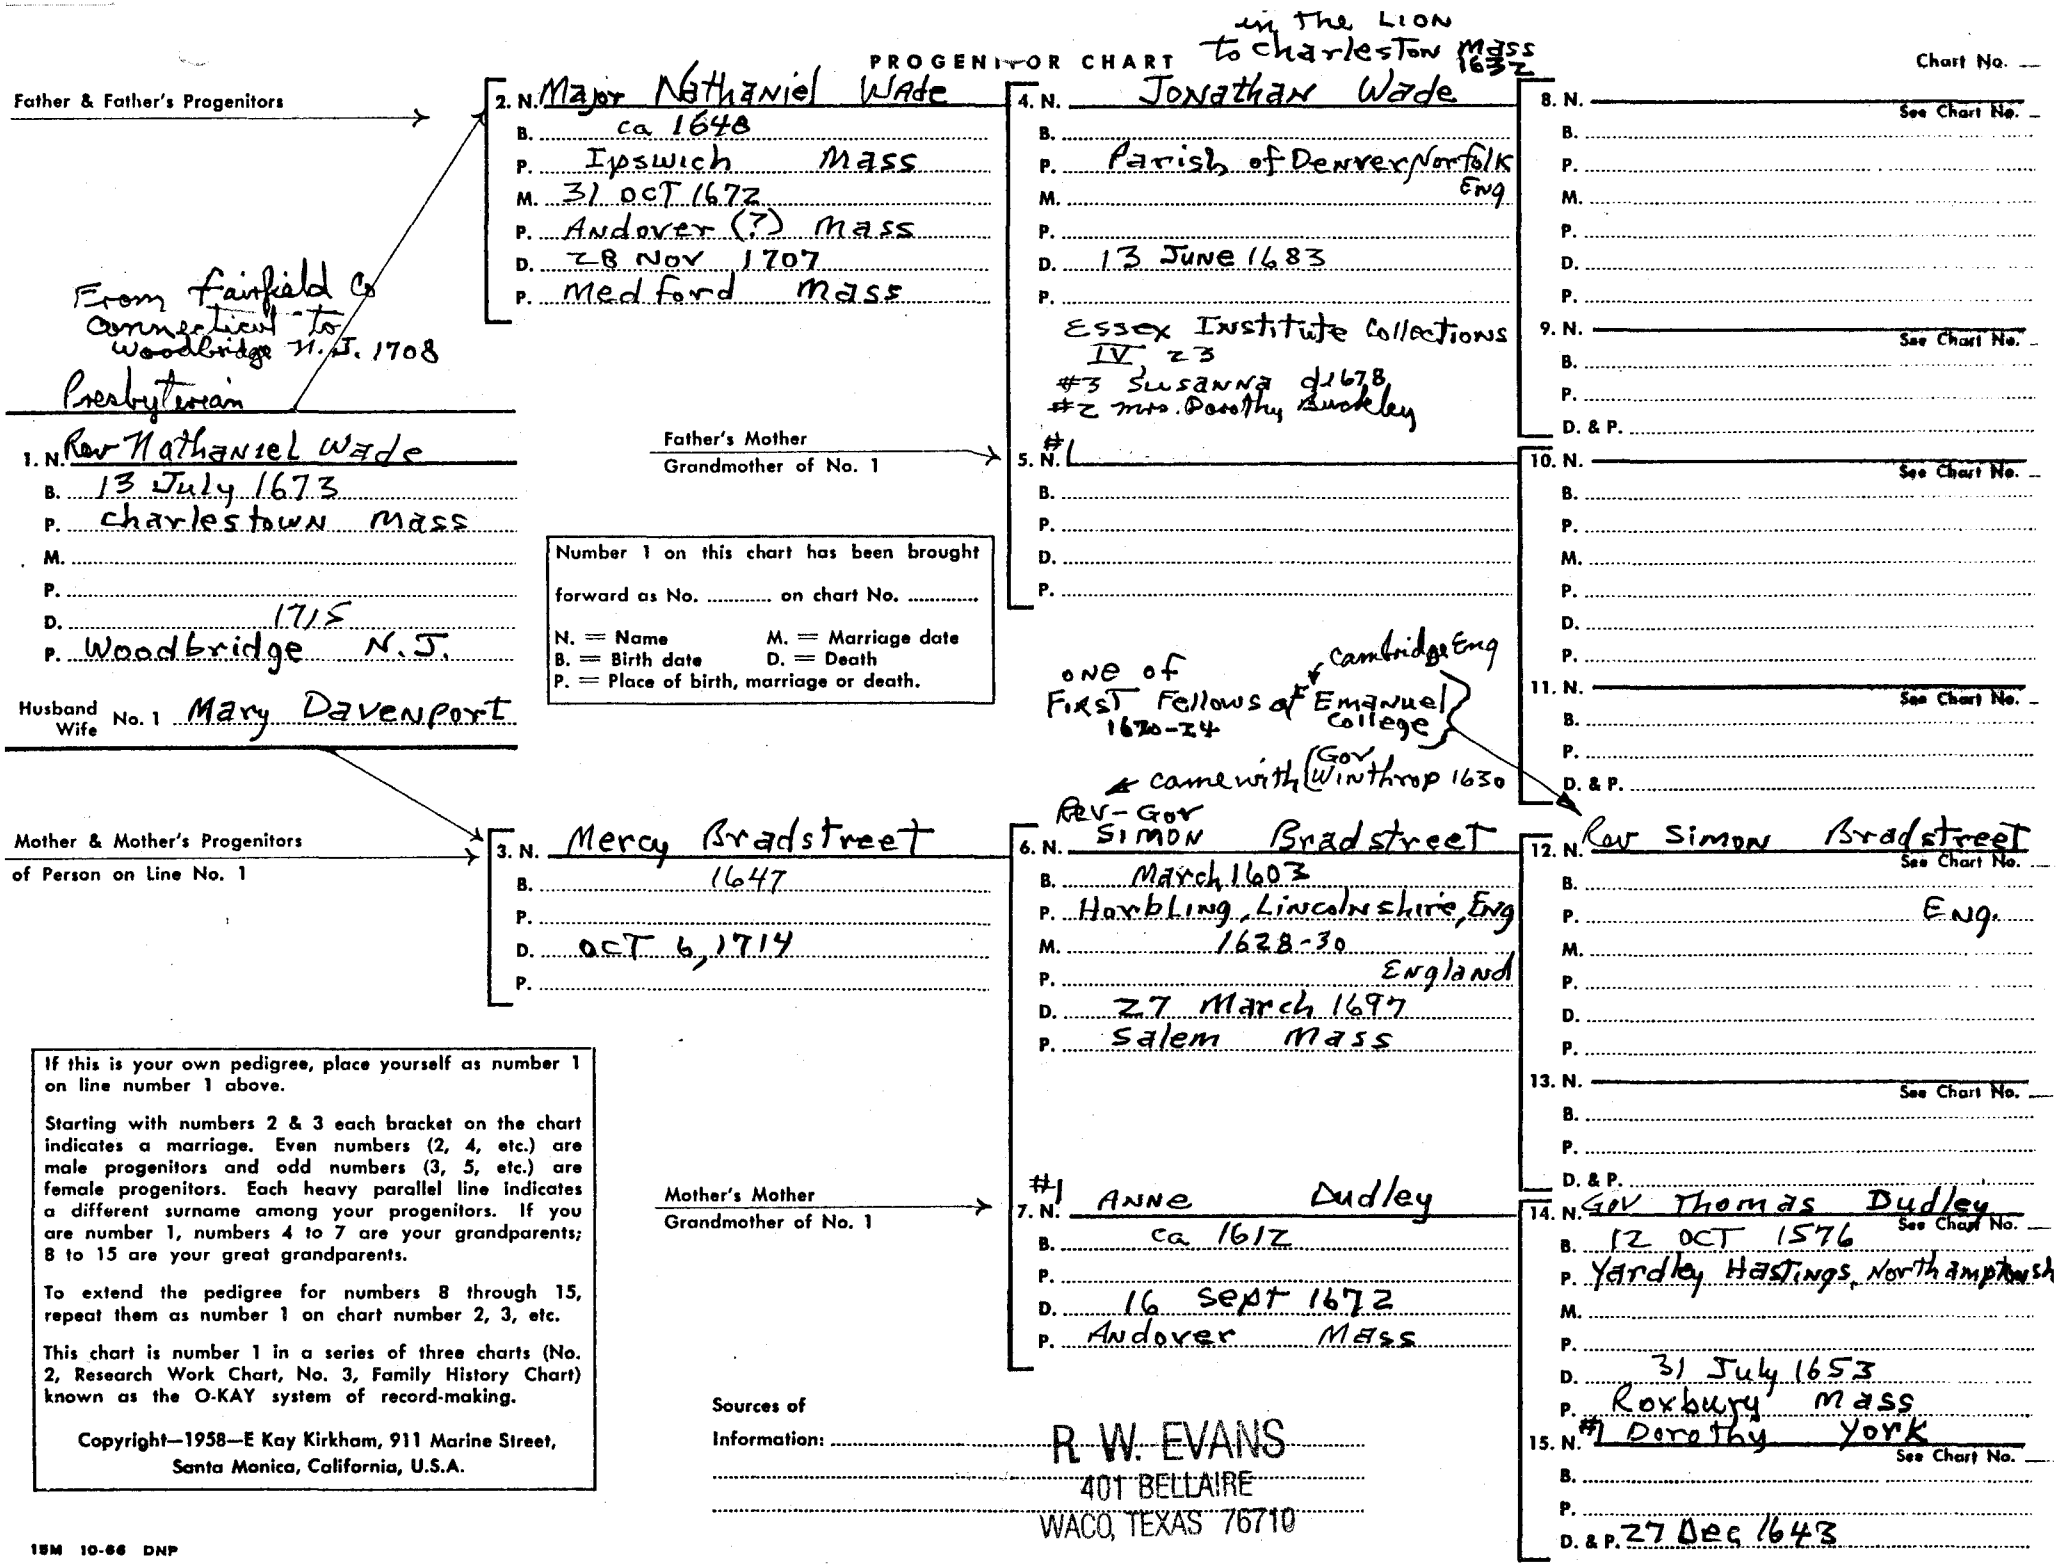 in The LION
to Charleston Mass
1632
PROGENITOR CHART
Chart No.
Father & Father's Progenitors
From Fairfield Co
Connecticut to
Woodbridge N.J. 1708
Presbyterian
1. N. Rev Nathaniel Wade
B. 13 July 1673
P. Charlestown Mass
M.
P.
D. 1715
P. Woodbridge N.J.
Husband
Wife No. 1 Mary Davenport
Mother & Mother's Progenitors
of Person on Line No. 1
2. N. Major Nathaniel Wade
B. ca 1648
P. Ipswich Mass
M. 31 OCT 1672
P. Andover (?) Mass
D. 28 Nov 1707
P. Medford Mass
Father's Mother
Grandmother of No. 1
Number 1 on this chart has been brought
forward as No. ........... on chart No. ............
N. = Name M. = Marriage date
B. = Birth date D. = Death
P. = Place of birth, marriage or death.
3. N. Mercy Bradstreet
B. 1647
P.
D. OCT 6, 1714
P.
Mother's Mother
Grandmother of No. 1
4. N. Jonathan Wade
B.
P. Parish of Denver, Norfolk
Eng
M.
P.
D. 13 June 1683
P.
Essex Institute Collections
IV, 23
#3 Susanna d 1678
#2 Mrs. Dorothy Buckley
5. N. #1
B.
P.
D.
P.
Cambridge Eng
ONE of
First Fellows of Emanuel
College
1620-24
came with Gov
Winthrop 1630
Rev-Gov
6. N. SIMON Bradstreet
B. March 1603
P. Horbling, Lincolnshire, Eng
M. 1628-30
P. England
D. 27 March 1697
P. Salem Mass
#1
7. N. ANNE Dudley
B. ca 1612
P.
D. 16 Sept 1672
P. Andover Mass
8. N.
See Chart No.
B.
P.
M.
P.
D.
P.
9. N.
See Chart No.
B.
P.
D. & P.
10. N.
See Chart No.
B.
P.
M.
P.
D.
P.
11. N.
See Chart No.
B.
P.
D. & P.
12. N. Rev Simon Bradstreet
See Chart No.
B.
P. Eng.
M.
P.
D.
P.
13. N.
See Chart No.
B.
P.
D. & P.
14. N. Gov Thomas Dudley
See Chart No.
B. 12 OCT 1576
P. Yardley Hastings, Northamptonsh
M.
P.
D. 31 July 1653
P. Roxbury Mass
15. N. #1 Dorothy York
See Chart No.
B.
P.
D. & P. 27 Dec 1643
If this is your own pedigree, place yourself as number 1
on line number 1 above.
Starting with numbers 2 & 3 each bracket on the chart
indicates a marriage. Even numbers (2, 4, etc.) are
male progenitors and odd numbers (3, 5, etc.) are
female progenitors. Each heavy parallel line indicates
a different surname among your progenitors. If you
are number 1, numbers 4 to 7 are your grandparents;
8 to 15 are your great grandparents.
To extend the pedigree for numbers 8 through 15,
repeat them as number 1 on chart number 2, 3, etc.
This chart is number 1 in a series of three charts (No.
2, Research Work Chart, No. 3, Family History Chart)
known as the O-KAY system of record-making.
Copyright—1958—E Kay Kirkham, 911 Marine Street,
Santa Monica, California, U.S.A.
Sources of
Information:
R. W. EVANS
401 BELLAIRE
WACO, TEXAS 76710
15M 10-66 DNP